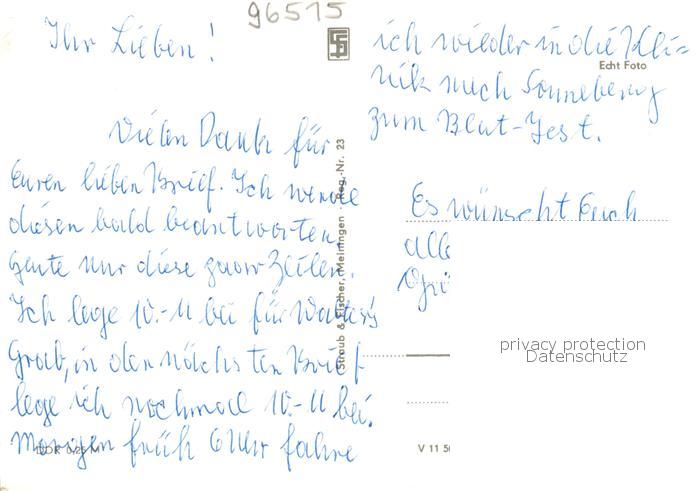 96515
Ihr Lieben!
Vielen Dank für
Euren lieben Brief. Ich werde
diesen bald beantworten,
heute nur diese paar Zeilen.
Ich lege 10.-M bei für
Grab, in den nächsten Brief
lege ich nochmal 10.-M bei.
Morgen früh 6 Uhr fahre
ich wieder in die Kli=
nik nach Sonneberg
zum Blut-Test.
Es wünscht Euch
alle
Echt Foto
Straub & Fischer, Meiningen Reg.-Nr. 23
DDR 0,25 M
V 11 50
privacy protection
Datenschutz